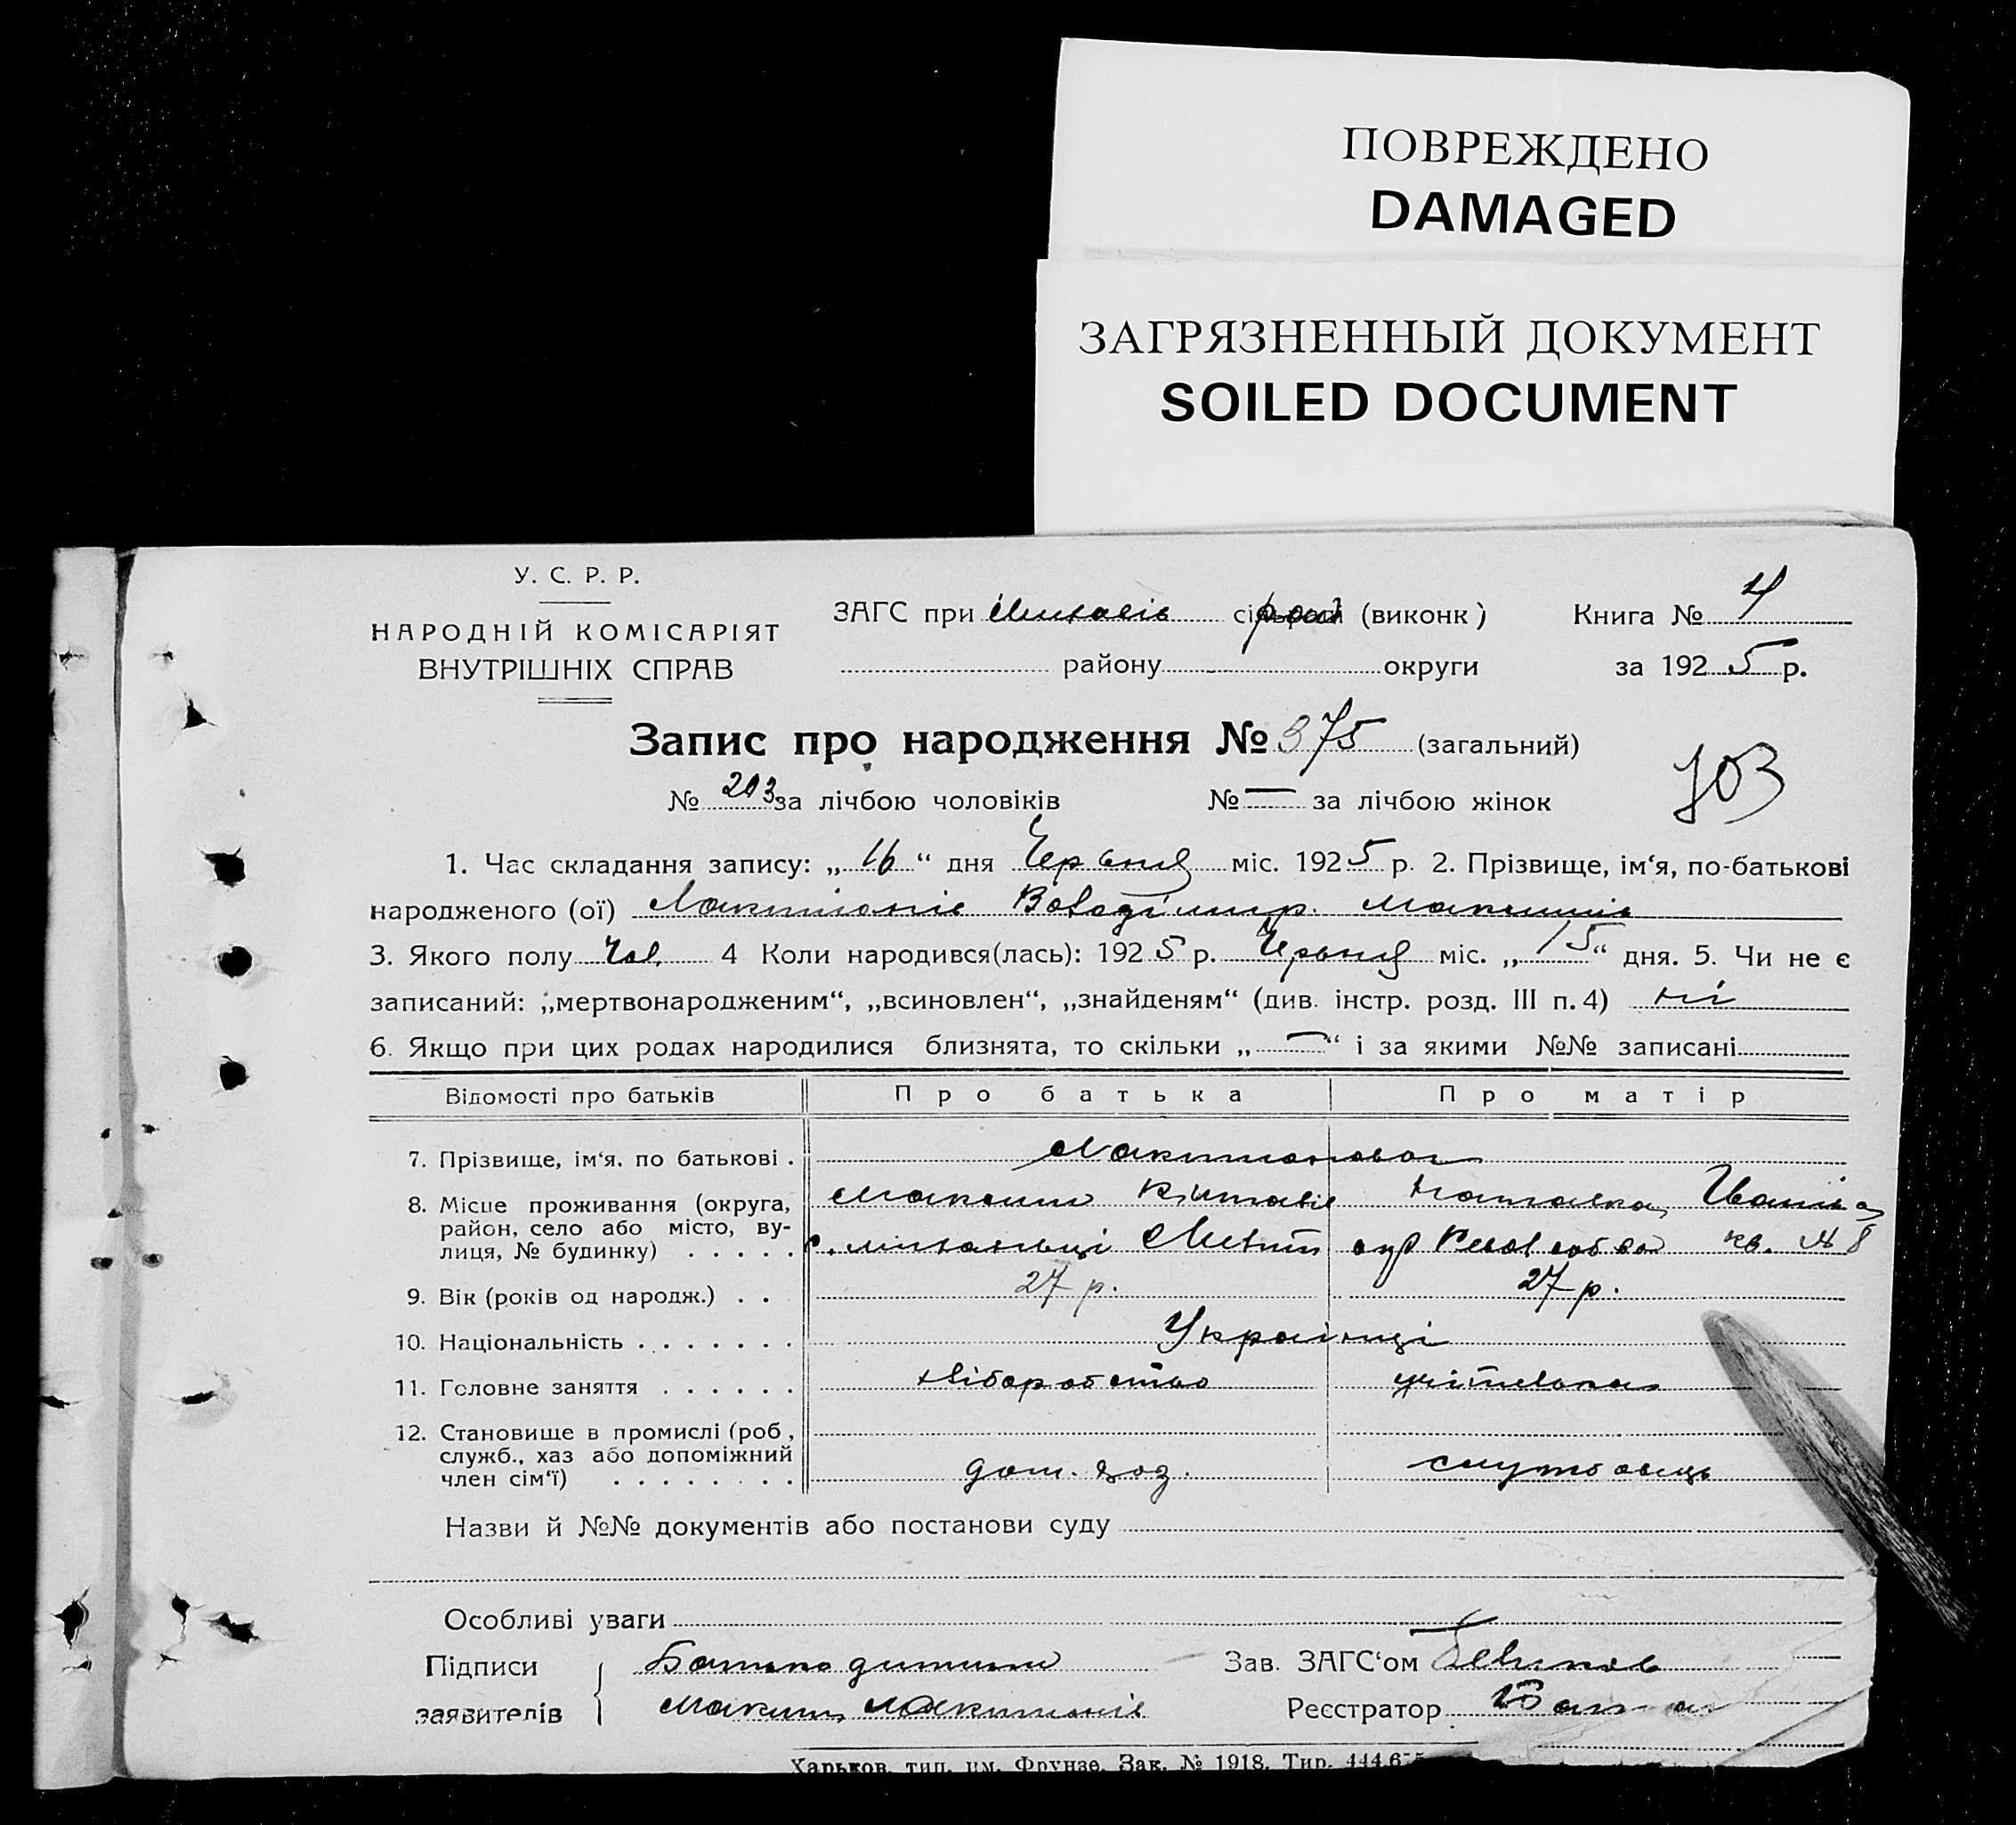 ПОВРЕЖДЕНО
DAMAGED
ЗАГРЯЗНЕННЫЙ ДОКУМЕНТ
SOILED DOCUMENT
У. С. Р. Р.
НАРОДНІЙ КОМІСАРІЯТ
ВНУТРІШНІХ СПРАВ
ЗАГС при (виконк) Книга № 4
району округи за 1925 р.
Запис про народження № 375 (загальний)
№ 203 за лічбою чоловіків № — за лічбою жінок
103
1. Час складання запису: „16“ дня Червня міс. 1925 р. 2. Прізвище, ім‘я, по-батькові
народженого (ої) Володімир Максимів
3. Якого полу Чол. 4 Коли народився(лась): 1925 р. Червня міс. „15“ дня. 5. Чи не є
записаний: „мертвонародженим“, „всиновлен“, „знайденям“ (див. інстр. розд. III п. 4) ні
6. Якщо при цих родах народилися близнята, то скільки „—“ і за якими №№ записані
Відомості про батьків Про батька Про матір
7. Прізвище, ім‘я, по батькові
8. Місце проживання (округа, район, село або місто, вулиця, № будинку) Максим Наталка Іванівна
кв. № 8
9. Вік (років од народж.) 27 р. 27 р.
10. Національність Українці
11. Головне заняття хліборобство учітелька
12. Становище в промислі (роб, служб., хаз або допоміжний член сім‘ї) дом. хоз. службовець
Назви й №№ документів або постанови суду
Особливі уваги
Підписи Батько дитини Зав. ЗАГС‘ом
заявителів Максим Реєстратор
Харьков, тип. им. Фрунзе. Зак. № 1918. Тир. 444.675